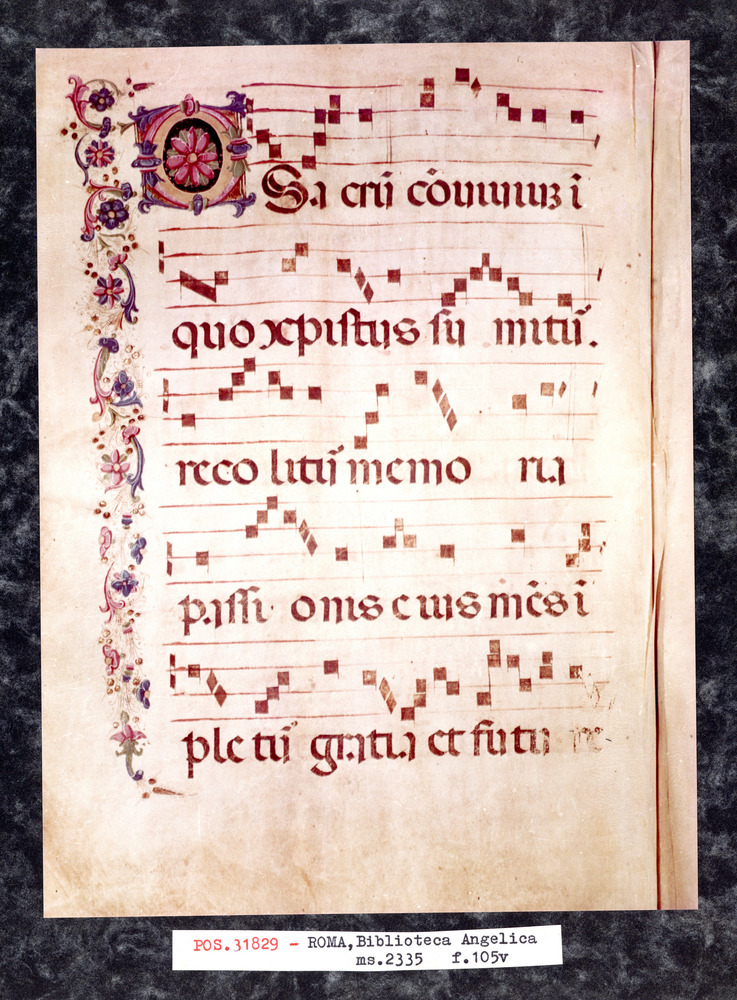 O Sacrū cōuiuiuȝ ī
quo xpistus su mitū.
reco litū memo ria
passi onis eius mēs ī
ple tū gratia et futu re
POS.31829 - ROMA,Biblioteca Angelica
ms.2335 f.105v